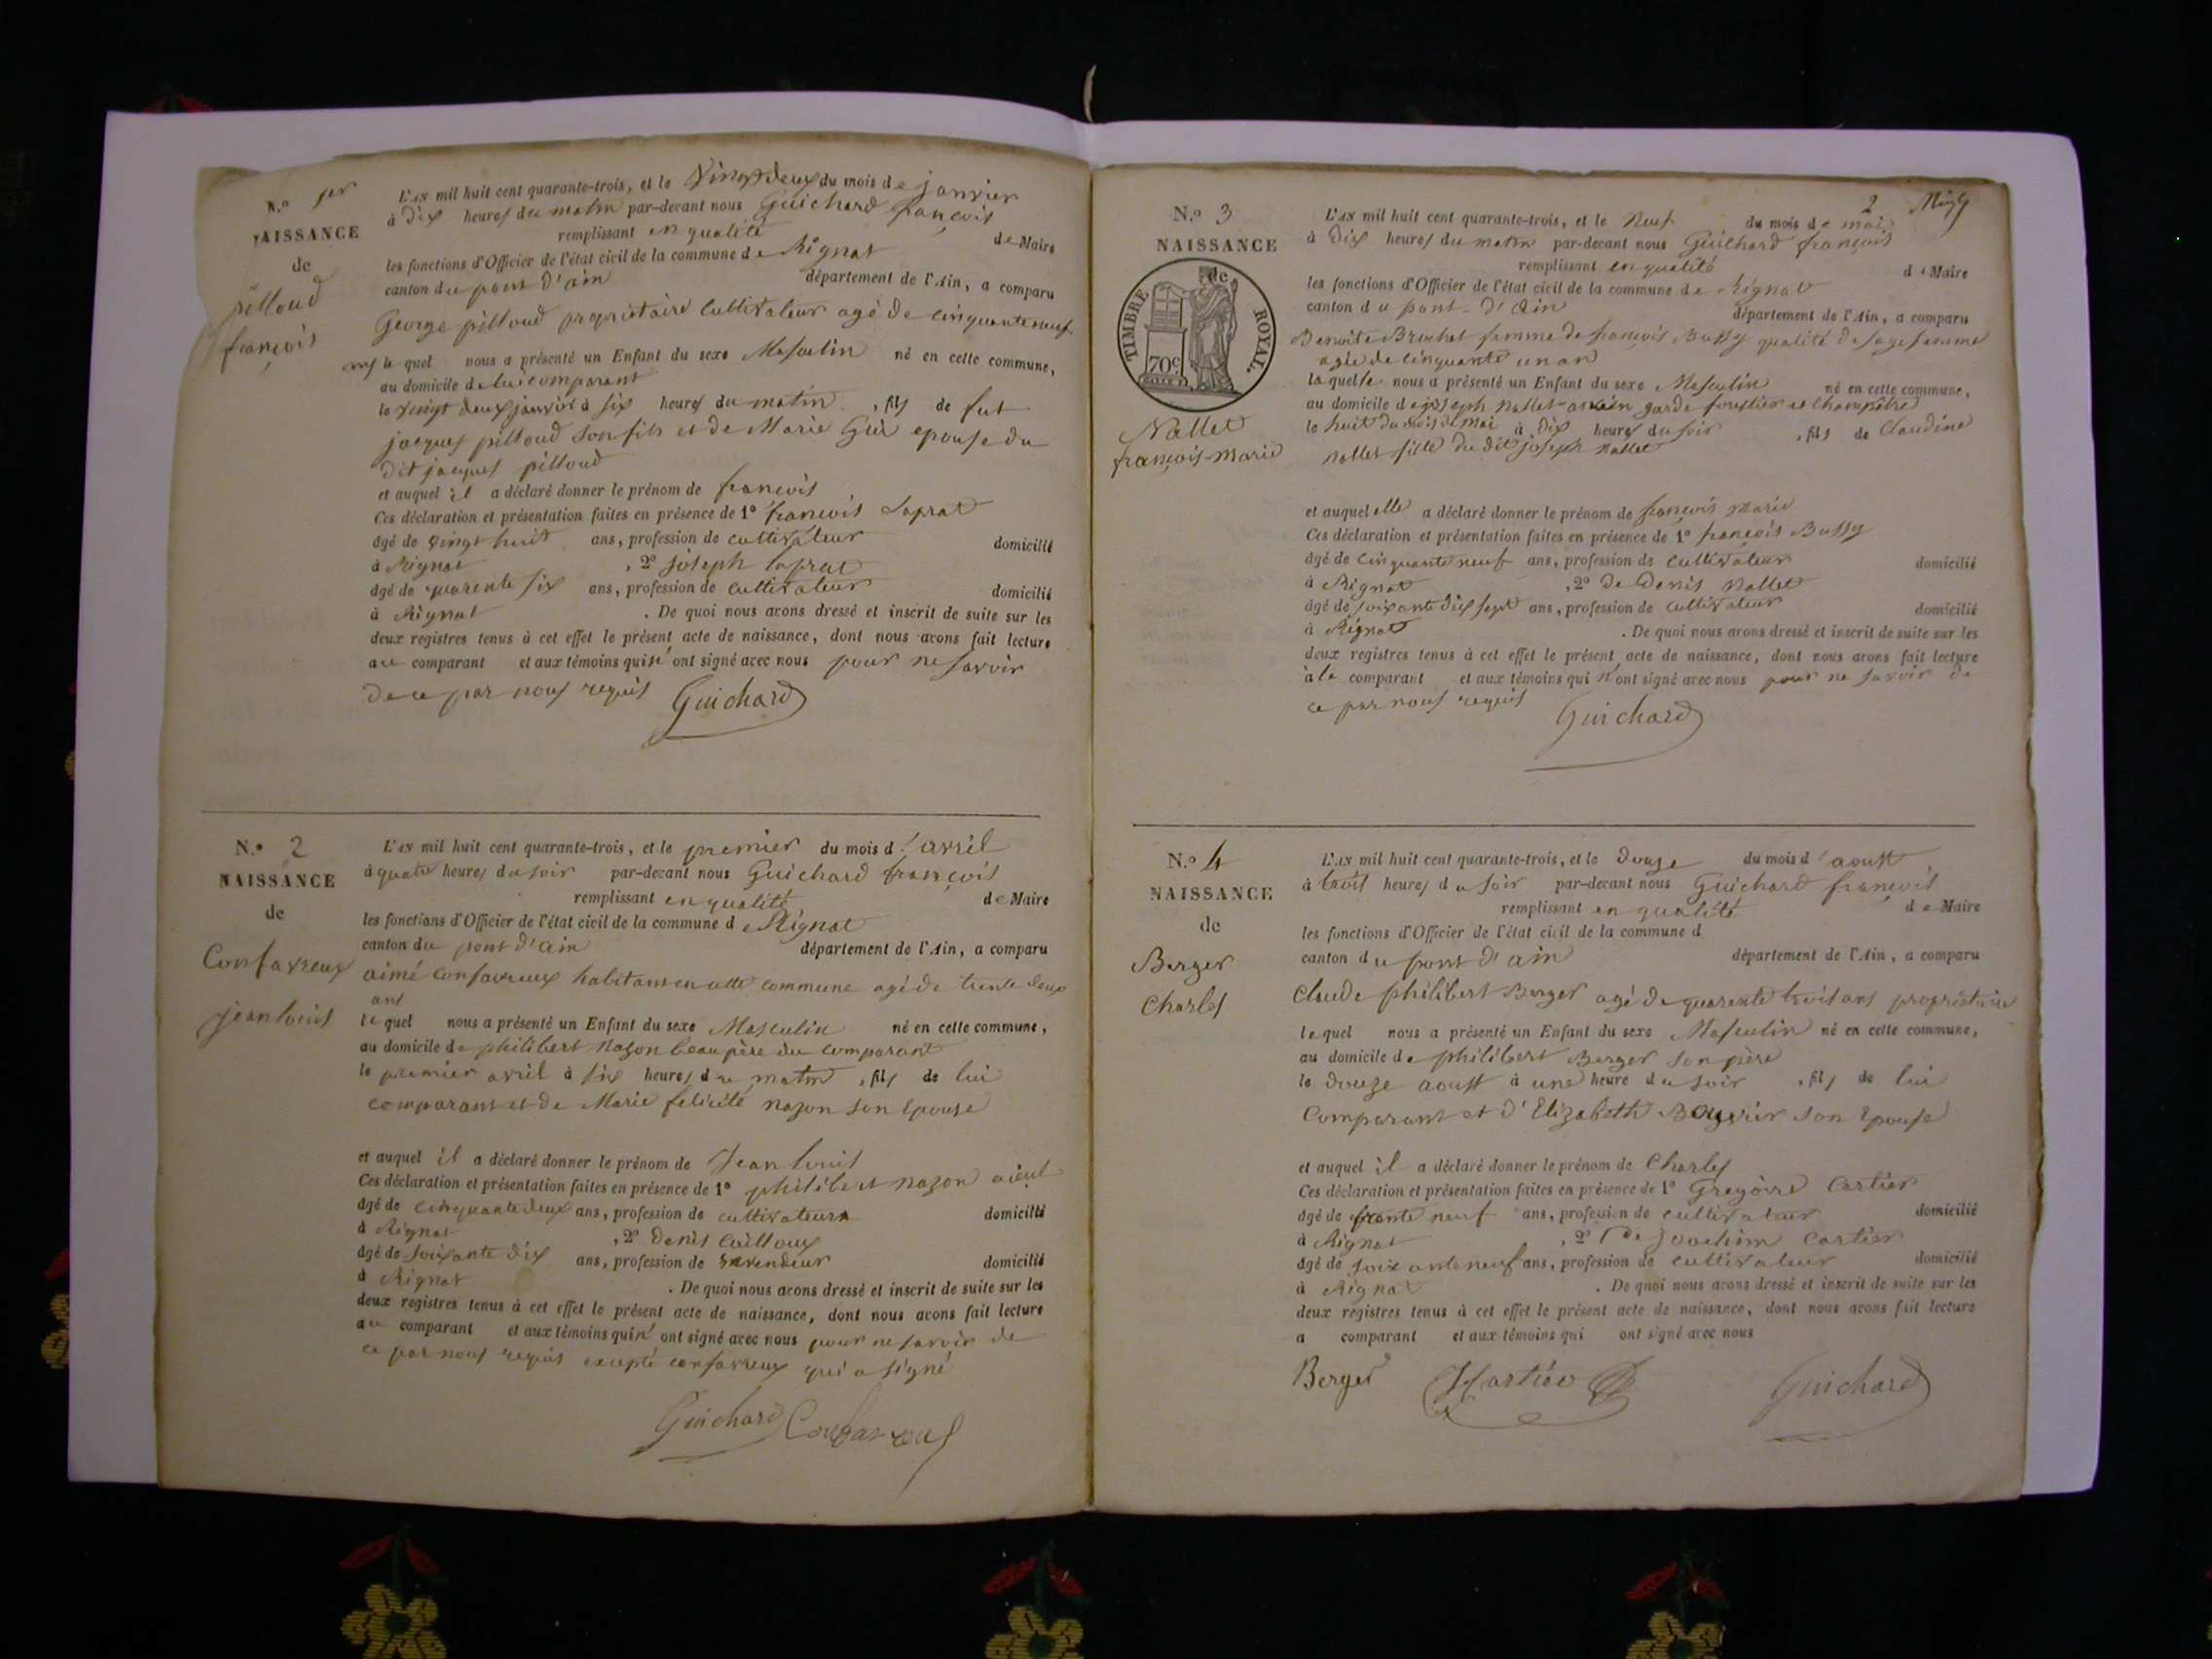 N.o 1er
NAISSANCE
de
pilloud
françois
L'AN mil huit cent quarante-trois, et le Vingt deux du mois de janvier
à dix heures du matin par-devant nous Guichard françois
remplissant en qualité de Maire
les fonctions d'Officier de l'état civil de la commune de Rignat
canton du pont d'ain département de l'Ain, a comparu
George pilloud propriétaire Cultivateur agé de cinquante neuf
ans le quel nous a présenté un Enfant du sexe Masculin né en cette commune,
au domicile de lui comparant
le vingt deux janvier à six heures du matin, fils de fut
jacques pilloud son fils et de Marie epouse du
dit jacques pilloud
et auquel il a déclaré donner le prénom de francois
Ces déclaration et présentation faites en présence de 1° francois Laprat
âgé de vingt huit ans, profession de cultivateur domicilié
à Rignat, 2° joseph laprat
âgé de quarente six ans, profession de cultivateur domicilié
à Rignat. De quoi nous avons dressé et inscrit de suite sur les
deux registres tenus à cet effet le présent acte de naissance, dont nous avons fait lecture
au comparant et aux témoins qui n'ont signé avec nous pour ne savoir
de ce par nous requis Guichard
N.o 2
NAISSANCE
de
Confavreux
jean louis
L'AN mil huit cent quarante-trois, et le premier du mois d'avril
à quatre heures du soir par-devant nous Guichard françois
remplissant en qualité de Maire
les fonctions d'Officier de l'état civil de la commune de Rignat
canton du pont d'ain département de l'Ain, a comparu
aimé confavreux habitant en cette commune agé de trente deux
ans
le quel nous a présenté un Enfant du sexe Masculin né en cette commune,
au domicile de philibert Nazon beau père du comparant
le premier avril à six heures du matin, fils de lui
comparant et de Marie felicité nazon son épouse
et auquel il a déclaré donner le prénom de Jean louis
Ces déclaration et présentation faites en présence de 1° philibert nazon aïeul
âgé de cinquante deux ans, profession de cultivateur domicilié
à Rignat, 2° denis
âgé de soixante dix ans, profession de domicilié
à Rignat. De quoi nous avons dressé et inscrit de suite sur les
deux registres tenus à cet effet le présent acte de naissance, dont nous avons fait lecture
au comparant et aux témoins qui n'ont signé avec nous pour ne savoir de
ce par nous requis excepté confavreux qui a signé
Guichard Confavreux
2
N.o 3
NAISSANCE
de
TIMBRE ROYAL.
70c
Nallet
françois-marie
L'AN mil huit cent quarante-trois, et le Neuf du mois de mai
à Dix heures du matin par-devant nous Guichard françois
remplissant en qualité de Maire
les fonctions d'Officier de l'état civil de la commune de Rignat
canton du pont-d'ain département de l'Ain, a comparu
Benoite Brochet femme de françois Bussy qualité de sage femme
agée de cinquante un an
la quelle nous a présenté un Enfant du sexe Masculin né en cette commune,
au domicile de joseph nallet ancien garde forestier et champêtre
le huit du mois de mai à dix heures du soir, fils de Claudine
nallet fille du dit joseph nallet
et auquel elle a déclaré donner le prénom de francois marie
Ces déclaration et présentation faites en présence de 1° françois Bussy
âgé de cinquante neuf ans, profession de cultivateur domicilié
à Rignat, 2° de Denis Nallet
âgé de soixante dix sept ans, profession de cultivateur domicilié
à Rignat. De quoi nous avons dressé et inscrit de suite sur les
deux registres tenus à cet effet le présent acte de naissance, dont nous avons fait lecture
à la comparant et aux témoins qui n'ont signé avec nous pour ne savoir de
ce par nous requis Guichard
N.o 4
NAISSANCE
de
Berger
Charles
L'AN mil huit cent quarante-trois, et le douze du mois d'aoust
à trois heures du soir par-devant nous Guichard françois
remplissant en qualité de Maire
les fonctions d'Officier de l'état civil de la commune d
canton du pont d'ain département de l'Ain, a comparu
Claude philibert Berger agé de quarente trois ans propriétaire
lequel nous a présenté un Enfant du sexe Masculin né en cette commune,
au domicile de philibert Berger son père
le douze aoust à une heure du soir, fils de lui
Comparant et d'Elizabeth Bouvier son épouse
et auquel il a déclaré donner le prénom de Charles
Ces déclaration et présentation faites en présence de 1° Gregoire Cartier
âgé de trente neuf ans, profession de cultivateur domicilié
à Rignat, 2° de Joachim Cartier
âgé de soixante neuf ans, profession de cultivateur domicilié
à Rignat. De quoi nous avons dressé et inscrit de suite sur les
deux registres tenus à cet effet le présent acte de naissance, dont nous avons fait lecture
a comparant et aux témoins qui ont signé avec nous
Berger Cartier Guichard